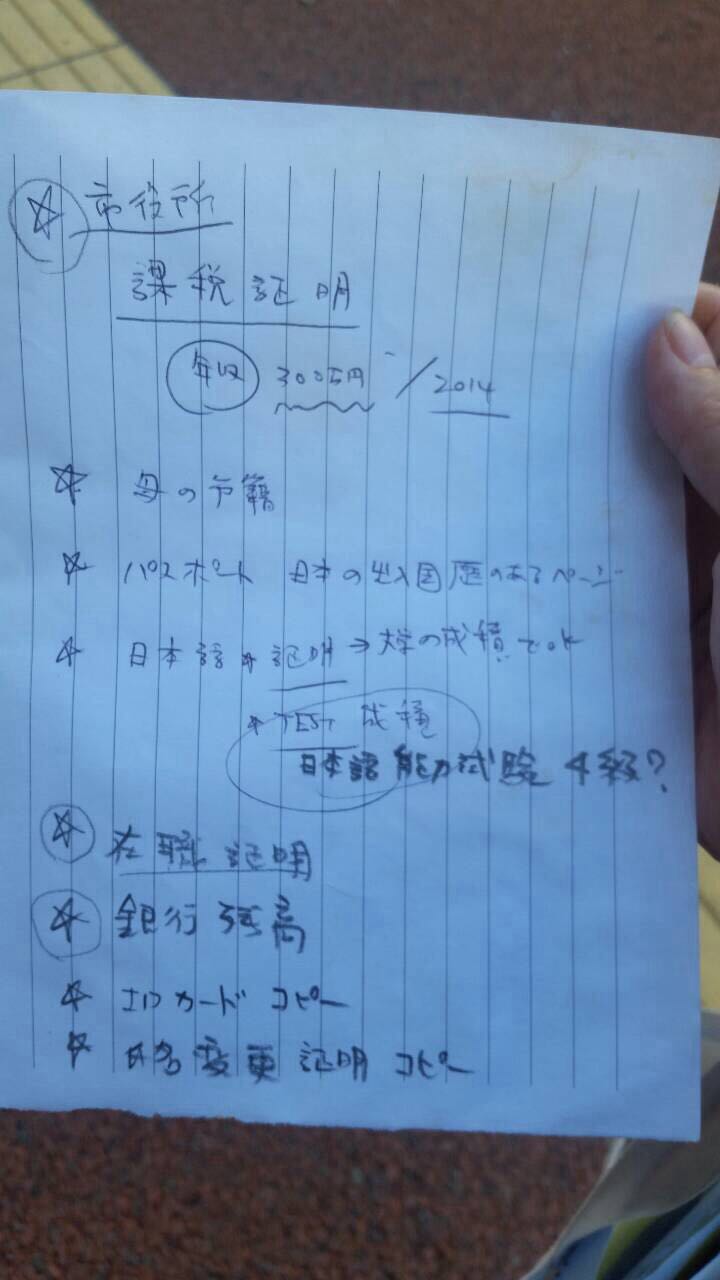 ☆ 市役所
課税証明
年収 300万円 / 2014
☆ 母の戸籍
☆ パスポート 日本の出入国歴のあるページ
☆ 日本語 * 証明 → 大学の成績でok
* TEST 成積
日本語能力試験 4級?
☆ 在職証明
☆ 銀行残高
☆ IDカード コピー
☆ 名変更証明 コピー